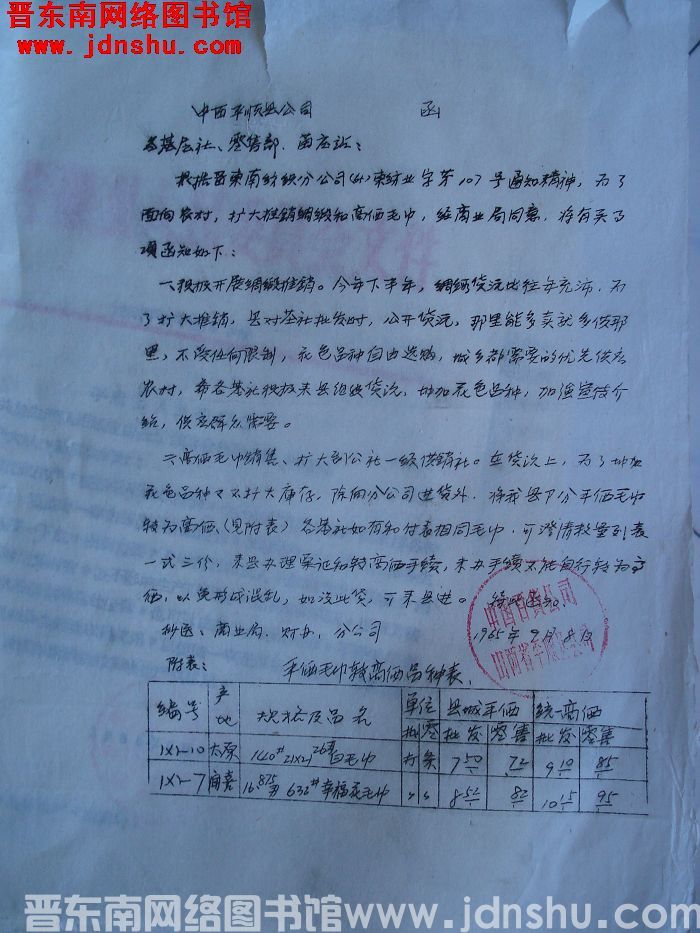 晋东南网络图书馆
www.jdnshu.com
中百平顺县公司 函
各基层社、零售部、菌店班:
根据晋东南纺织分公司(65)东纺业字第107号通知精神,为了
面向农村,扩大推销绸缎和高価毛巾,经商业局同意,将有关事
项函知如下:
一、积极开展绸缎推销。今年下半年,绸缎货况比往年充沛,为
了扩大推销,县对基社批发时,公开货况,那里能多卖就多供那
里,不受任何限制,花色品种自由选购,城乡都需要的优先供应
农村,希各基社积极来县组织货况,增加花色品种,加强宣传介
绍,供应群众需要。
二、高価毛巾销售、扩大到公社一级供销社。在货况上,为了增加
花色品种又不扩大库存,除向分公司进货外,将我县部分平価毛巾
转为高価,(见附表)各基社如有和付表相同毛巾,可澄清数量列表
一式三份,来县办理票证和转高価手续,未办手续不能自行转为高
価,以免形成混乱,如没此货,可来县进。 特此函知
1965年9月8日
抄送、商业局、财办、分公司
中国百货公司
山西省平顺县公司
附表: 平価毛巾转高価品种表
编号 产地 规格及品名 单位 县城平価 统一高価
批 零 批发 零售 批发 零售
1X2-10 太原 140# 21X21 26 白毛巾 打 条 7 50 72 9 10 85
1X2-7 闻喜 16.875 632# 幸福花毛巾 〃 〃 8 52 82 10 15 95
晋东南网络图书馆 www.jdnshu.com